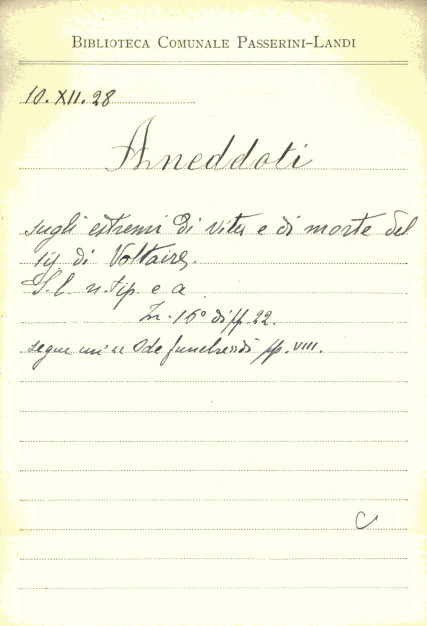 BIBLIOTECA COMUNALE PASSERINI-LANDI
10.XII.28
Aneddoti
sugli estremi di vita e di morte del
sig di Voltaire.
S. l. n. tip. e a
In-16° di pp. 22.
segue un' Ode funebre di pp. VIII.
C